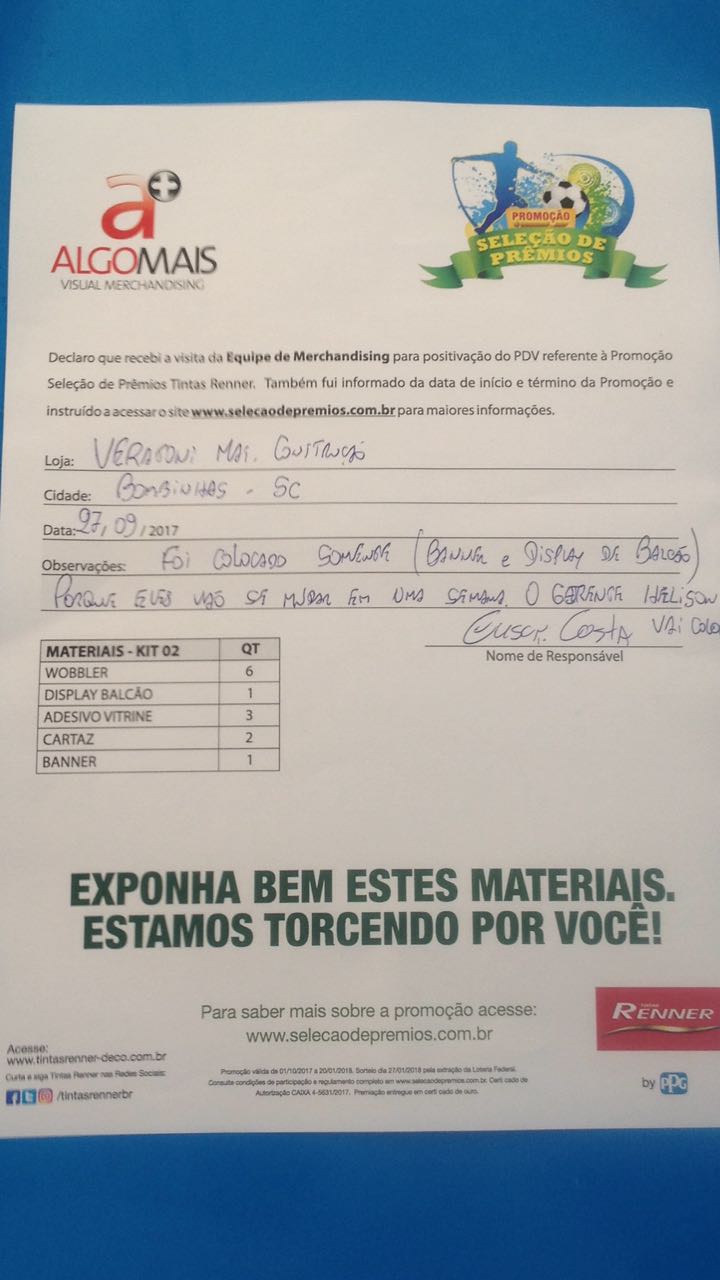 a+
ALGOMAIS
VISUAL MERCHANDISING
PROMOÇÃO
SELEÇÃO DE
PRÊMIOS
Declaro que recebi a visita da Equipe de Merchandising para positivação do PDV referente à Promoção
Seleção de Prêmios Tintas Renner. Também fui informado da data de início e término da Promoção e
instruído a acessar o site www.selecaodepremios.com.br para maiores informações.
Loja: MAT. CONSTRUÇÃO
Cidade: BOMBINHAS - SC
Data: 27/09/2017
Observações: FOI COLOCADO SOMENTE (BANNER e DISPLAY DE BALCÃO)
PORQUE ELES VÃO SE MUDAR EM UMA SEMANA. O GERENTE HELISON
COSTA VAI COLO
Nome de Responsável
MATERIAIS - KIT 02 QT
WOBBLER 6
DISPLAY BALCÃO 1
ADESIVO VITRINE 3
CARTAZ 2
BANNER 1
EXPONHA BEM ESTES MATERIAIS.
ESTAMOS TORCENDO POR VOCÊ!
Para saber mais sobre a promoção acesse:
www.selecaodepremios.com.br
TINTAS
RENNER
by PPG
Acesse:
www.tintasrenner-deco.com.br
Curta e siga Tintas Renner nas Redes Sociais:
/tintasrennerbr
Promoção válida de 01/10/2017 a 20/01/2018. Sorteio dia 27/01/2018 pela extração da Loteria Federal.
Consulte condições de participação e regulamento completo em www.selecaodepremios.com.br. Certi cado de
Autorização CAIXA 4-5631/2017. Premiação entregue em certi cado de ouro.